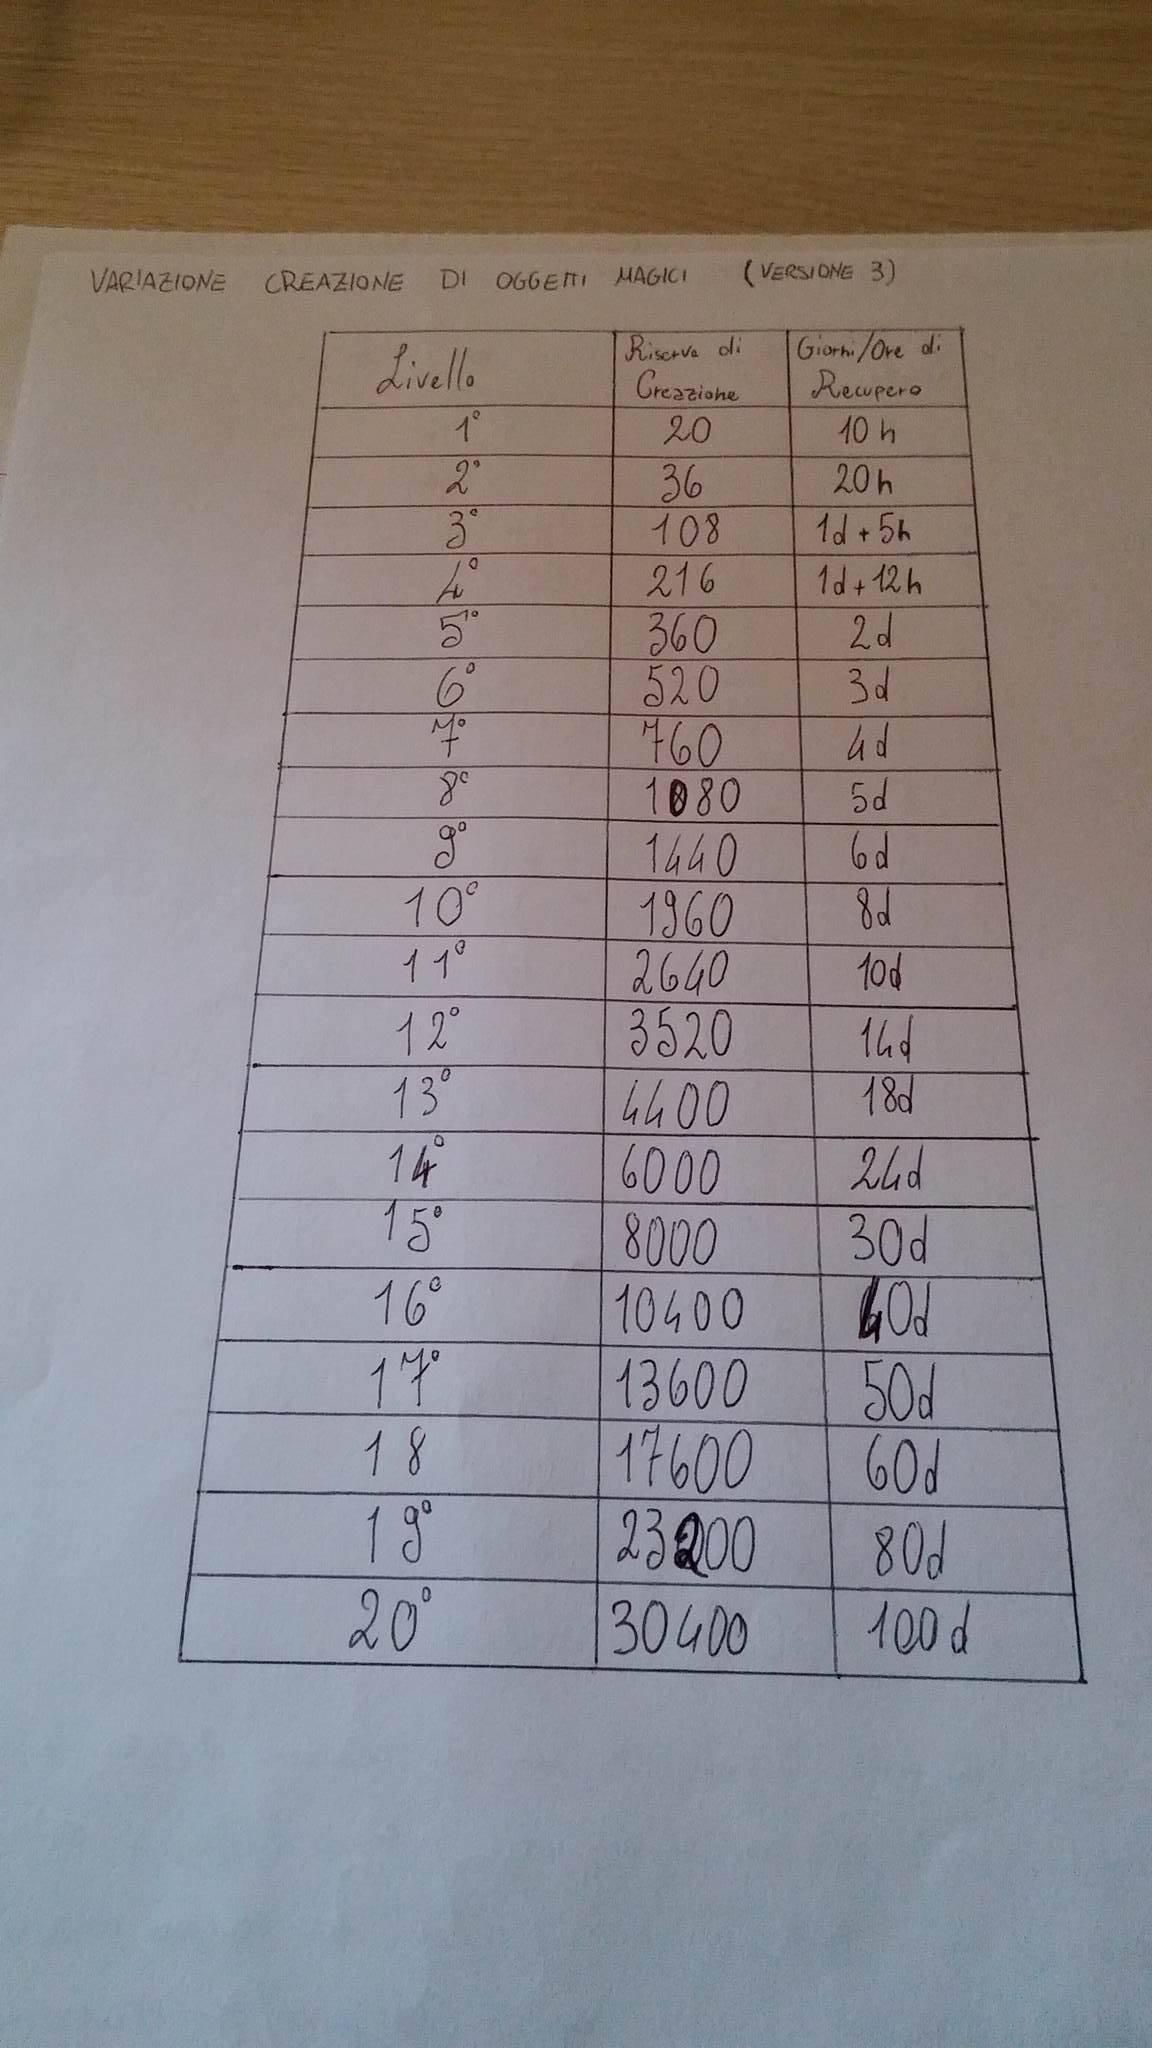 VARIAZIONE CREAZIONE DI OGGETTI MAGICI (VERSIONE 3)
Livello Riserva di Creazione Giorni/Ore di Recupero
1° 20 10h
2° 36 20h
3° 108 1d + 5h
4° 216 1d + 12h
5° 360 2d
6° 520 3d
7° 760 4d
8° 1080 5d
9° 1440 6d
10° 1960 8d
11° 2640 10d
12° 3520 14d
13° 4400 18d
14° 6000 24d
15° 8000 30d
16° 10400 40d
17° 13600 50d
18 17600 60d
19° 23200 80d
20° 30400 100d